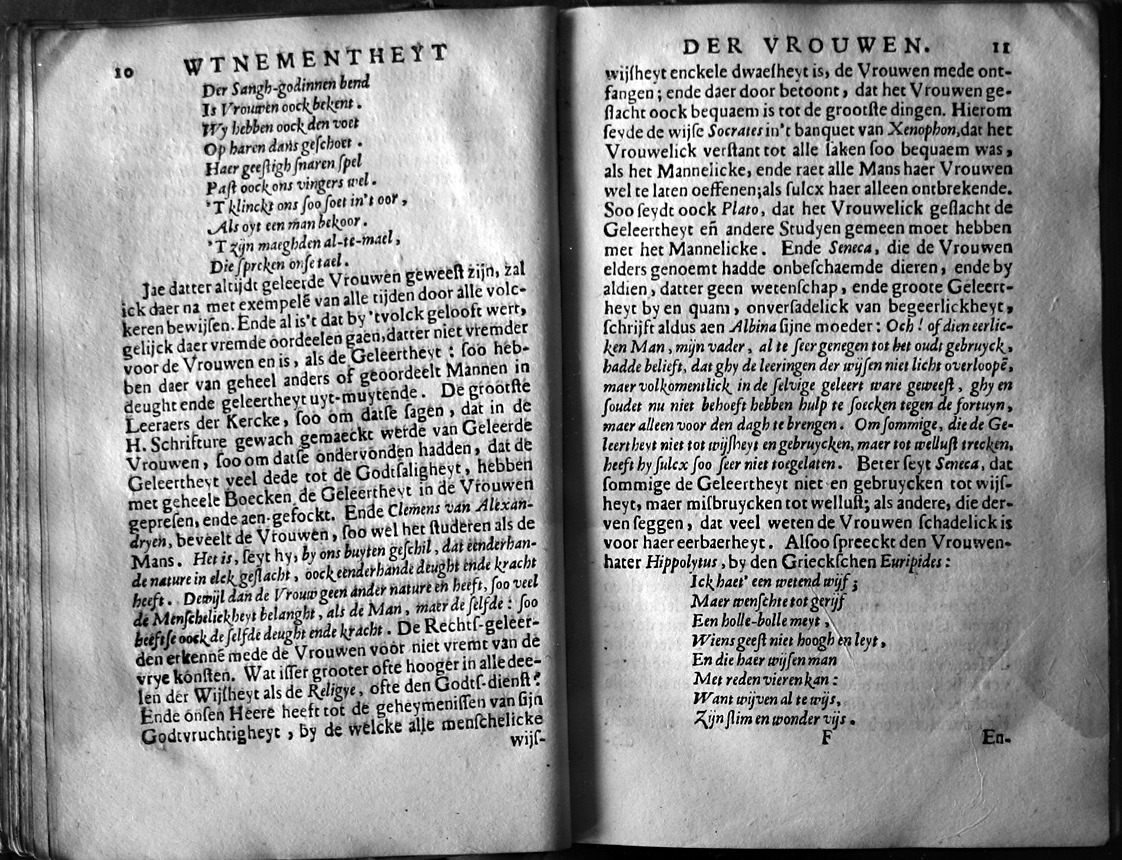 10 WTNEMENTHEYT
Der Sangh-godinnen bend
Is Vrouwen oock bekent.
Wy hebben oock den voet
Op haren dans geschoet.
Haer geestigh snaren spel
Past oock ons vingers wel.
'T klinckt ons soo soet in't oor,
Als oyt een man bekoor.
'T zijn maeghden al-te-mael,
Die spreken onse tael.
Jae datter altijdt geleerde Vrouwen geweest zijn, zal
ick daer na met exempelē van alle tijden door alle volc-
keren bewijsen. Ende al is't dat by 'tvolck gelooft wert,
gelijck daer vremde oordeelen gaen, datter niet vremder
voor de Vrouwen en is, als de Geleertheyt: soo heb-
ben daer van geheel anders of geoordeelt Mannen in
deught ende geleertheyt uyt-muytende. De grootste
Leeraers der Kercke, soo om datse sagen, dat in de
H. Schrifture gewach gemaeckt werde van Geleerde
Vrouwen, soo om datse ondervonden hadden, dat de
Geleertheyt veel dede tot de Godtsaligheyt, hebben
met geheele Boecken de Geleertheyt in de Vrouwen
gepresen, ende aen-gefockt. Ende Clemens van Alexan-
dryen, beveelt de Vrouwen, soo wel het studeren als de
Mans. Het is, seyt hy, by ons buyten geschil, dat eenderhan-
de nature in elck geslacht, oock eenderhande deught ende kracht
heeft. Dewijl dan de Vrouw geen ander nature en heeft, soo veel
de Menscheliekheyt belanght, als de Man, maer de selfde: soo
heeftse oock de selfde deught ende kracht. De Rechts-geleer-
den erkennē mede de Vrouwen voor niet vremt van de
vrye konsten. Wat isser grooter ofte hooger in alle dee-
len der Wijsheyt als de Religye, ofte den Godts-dienst?
Ende onsen Heere heeft tot de geheymenissen van sijn
Godtvruchtigheyt, by de welcke alle menschelicke
wijs-
DER VROUWEN. 11
wijsheyt enckele dwaesheyt is, de Vrouwen mede ont-
fangen; ende daer door betoont, dat het Vrouwen ge-
slacht oock bequaem is tot de grootste dingen. Hierom
seyde de wijse Socrates in't banquet van Xenophon, dat het
Vrouwelick verstant tot alle saken soo bequaem was,
als het Mannelicke, ende raet alle Mans haer Vrouwen
wel te laten oeffenen; als sulcx haer alleen ontbrekende.
Soo seydt oock Plato, dat het Vrouwelick geslacht de
Geleertheyt eñ andere Studyen gemeen moet hebben
met het Mannelicke. Ende Seneca, die de Vrouwen
elders genoemt hadde onbeschaemde dieren, ende by
aldien, datter geen wetenschap, ende groote Geleert-
heyt by en quam, onversadelick van begeerlickheyt,
schrijft aldus aen Albina sijne moeder: Och! of dien eerlic-
ken Man, mijn vader, al te seer genegen tot het oudt gebruyck,
hadde belieft, dat ghy de leeringen der wijsen niet licht overloopē,
maer volkomentlick in de selvige geleert ware geweest, ghy en
soudet nu niet behoeft hebben hulp te soecken tegen de fortuyn,
maer alleen voor den dagh te brengen. Om sommige, die de Ge-
leertheyt niet tot wijsheyt en gebruycken, maer tot wellust trecken,
heeft hy sulcx soo seer niet toegelaten. Beter seyt Seneca, dat
sommige de Geleertheyt niet en gebruycken tot wijs-
heyt, maer misbruycken tot wellust; als andere, die der-
ven seggen, dat veel weten de Vrouwen schadelick is
voor haer eerbaerheyt. Alsoo spreeckt den Vrouwen-
hater Hippolytus, by den Grieckschen Euripides:
Ick haet' een wetend wijf;
Maer wenschte tot gerijf
Een holle-bolle meyt,
Wiens geest niet hoogh en leyt,
En die haer wijsen man
Met reden vieren kan:
Want wijven al te wijs,
Zijn slim en wonder vijs.
F En-